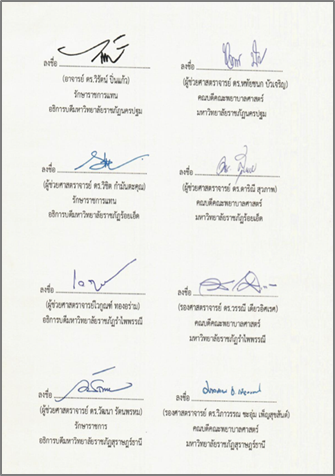 ลงชื่อ
(อาจารย์ ดร.วิรัตน์ ปิ่นแก้ว)
รักษาราชการแทน
อธิการบดีมหาวิทยาลัยราชภัฏนครปฐม
ลงชื่อ
(ผู้ช่วยศาสตราจารย์ ดร.หทัยชนก บัวเจริญ)
คณบดีคณะพยาบาลศาสตร์
มหาวิทยาลัยราชภัฏนครปฐม
ลงชื่อ
(ผู้ช่วยศาสตราจารย์ ดร.วิชิต กำมันตะคุณ)
รักษาราชการแทน
อธิการบดีมหาวิทยาลัยราชภัฏร้อยเอ็ด
ลงชื่อ
(ผู้ช่วยศาสตราจารย์ ดร.ดาริณี สุภาพ)
คณบดีคณะพยาบาลศาสตร์
มหาวิทยาลัยราชภัฏร้อยเอ็ด
ลงชื่อ
(ผู้ช่วยศาสตราจารย์ไวกูณฑ์ ทองอร่าม)
อธิการบดีมหาวิทยาลัยราชภัฏรำไพพรรณี
ลงชื่อ
(รองศาสตราจารย์ ดร.วรรณี เดียวอิศเรศ)
คณบดีคณะพยาบาลศาสตร์
มหาวิทยาลัยราชภัฏรำไพพรรณี
ลงชื่อ
(ผู้ช่วยศาสตราจารย์ ดร.วัฒนา รัตนพรหม)
รักษาราชการ
อธิการบดีมหาวิทยาลัยราชภัฏสุราษฎร์ธานี
ลงชื่อ
(รองศาสตราจารย์ ดร.วิภาวรรณ ชะอุ่ม เพ็ญสุขสันต์)
คณบดีคณะพยาบาลศาสตร์
มหาวิทยาลัยราชภัฏสุราษฎร์ธานี